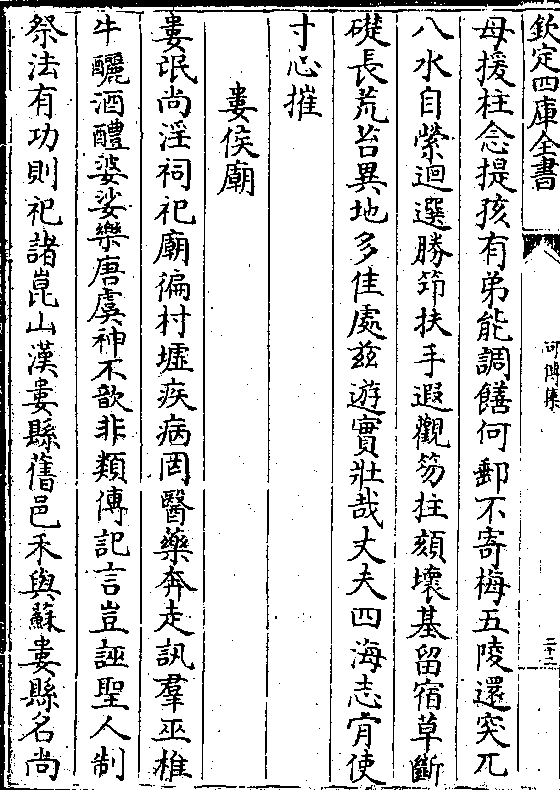 欽定四庫全書
可傳集
二十二
母援柱念提孩有弟能調饍何郵不寄梅五陵還突兀
八水自縈迴選勝笻扶手遐觀笏拄頦壞基留宿草斷
礎長荒苔異地多佳處兹遊實壯哉丈夫四海志肯使
寸心摧
婁侯廟
婁氓尚淫祠祀廟徧村墟疾病罔醫藥奔走訊羣巫椎
牛釃酒醴婆娑樂唐虞神不歆非類傳記言豈誣聖人制
祭法有功則祀諸崑山漢婁縣舊邑禾與蘇婁縣名尚